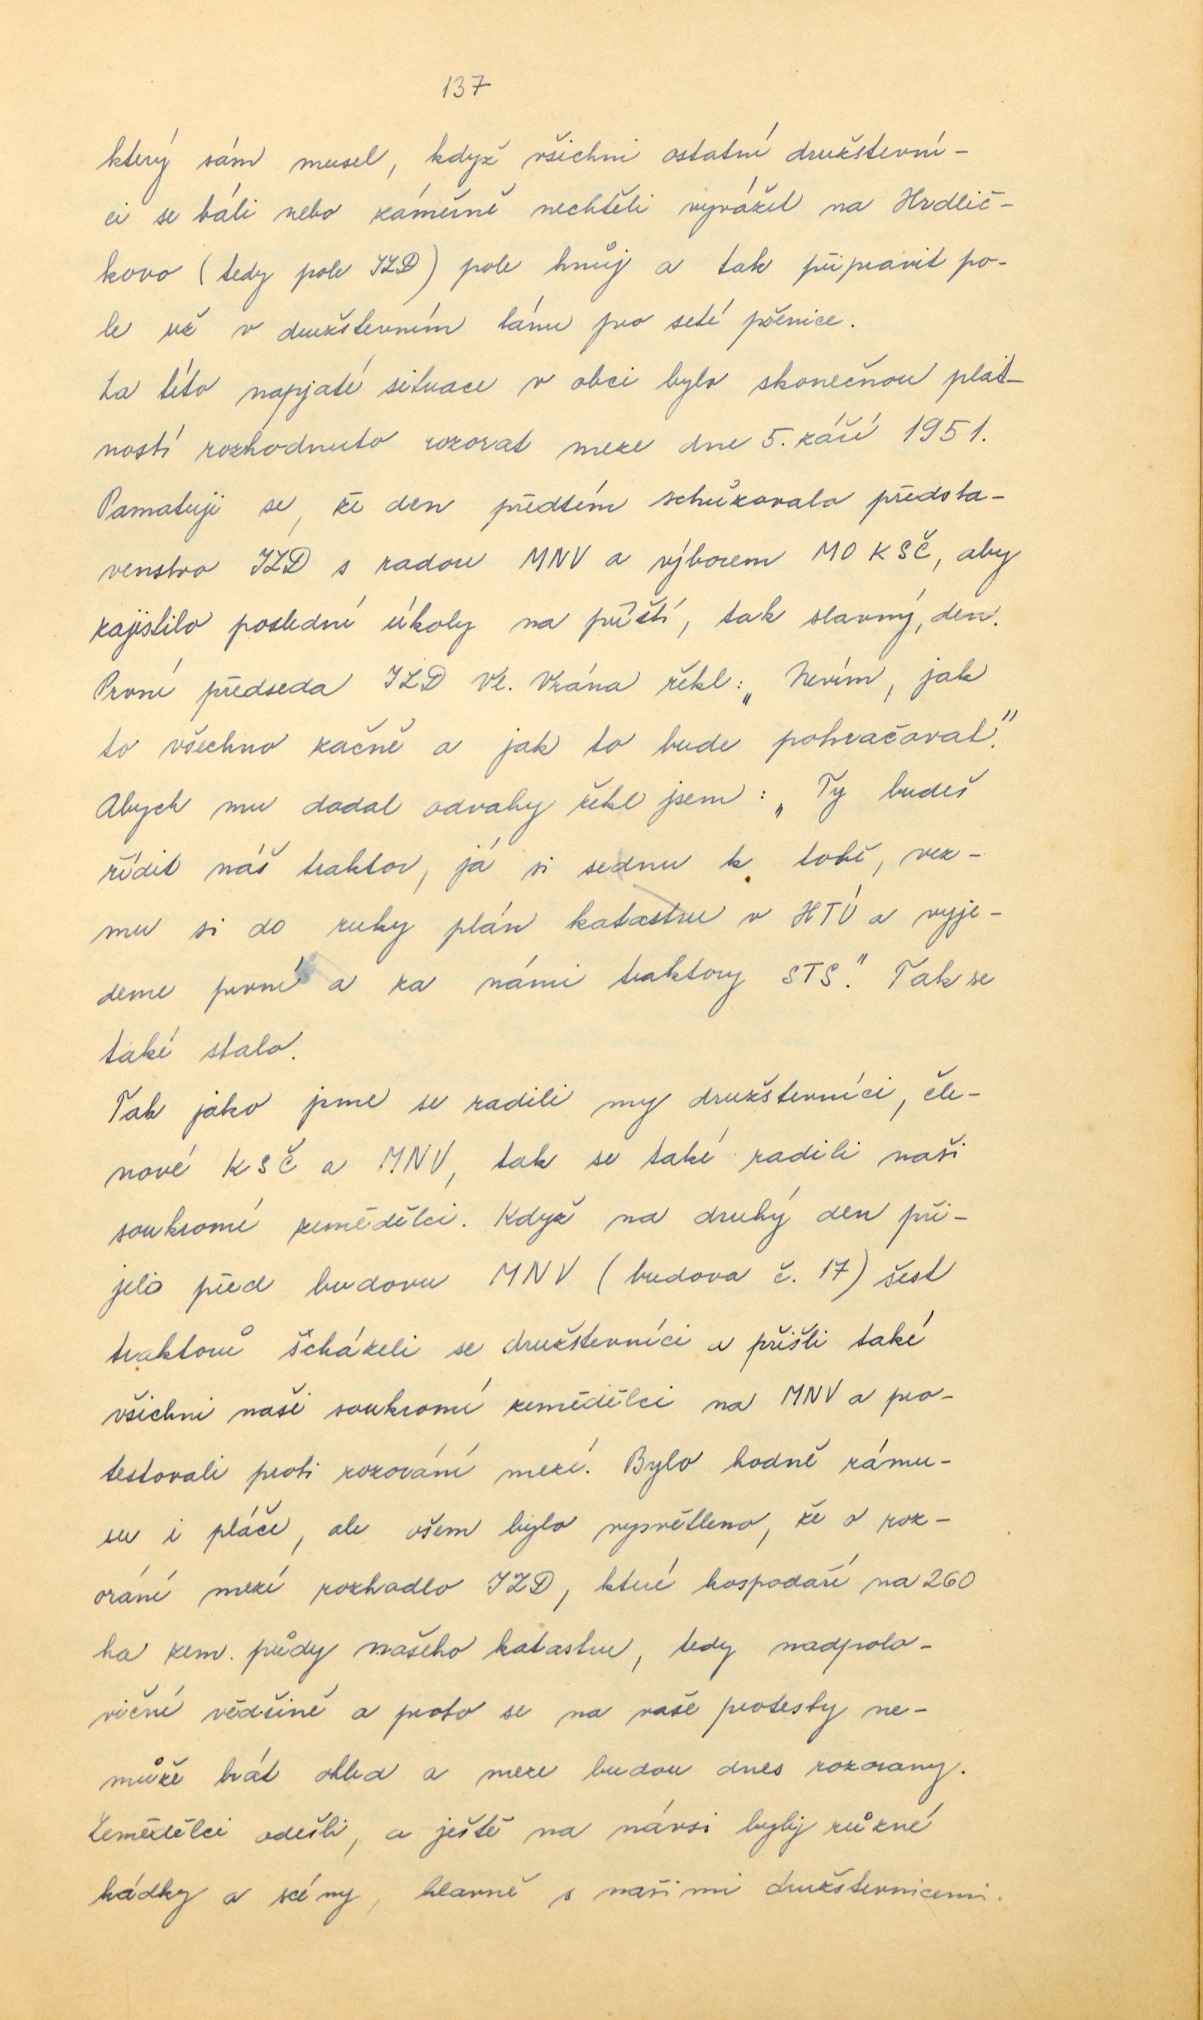 137
který sám musel, když všichni ostatní družstevní-
ci se báli nebo záměrně nechtěli vyvážet na Hrdlič-
kovo (tedy pole JZD) pole hnůj a tak připravit po-
le už v družstevním lánu pro seté pšenice.
Za této napjaté situace v obci bylo skonečnou plat-
ností rozhodnuto rozorat meze dne 5. září 1951.
Pamatuji se, že den předtím schůzovalo předsta-
venstvo JZD s radou MNV a výborem MO KSČ, aby
zajistilo poslední úkoly na příští, tak slavný, den.
První předseda JZD Vl. Vrána řekl: „Nevím, jak
to všechno začně a jak to bude pokračovat."
Abych mu dodal odvahy řekl jsem: „Ty budeš
řídit náš traktor, já si sednu k tobě, vez-
mu si do ruky plán katastru v HTÚ a vyje-
deme první a za námi traktory STS." Tak se
také stalo.
Tak jako jsme se radili my družstevníci, čle-
nové KSČ a MNV, tak se také radili naši
soukromí zemědělci. Když na druhý den při-
jelo před budovu MNV (budova č. 17) šest
traktorů scházeli se družstevníci a přišli také
všichni naši soukromí zemědělci na MNV a pro-
testovali proti rozorání mezí. Bylo hodně rámu-
su i pláče, ale všem bylo vysvětleno, že o roz-
orání mezí rozhodlo JZD, které hospodaří na 260
ha zem. půdy našeho katastru, tedy nadpolo-
viční vědšině a proto se na vaše protesty ne-
může brát ohled a meze budou dnes rozorany.
Zemědělci odešli, a ještě na návsi byly různé
hádky a scény, hlavně s našimi družstevnicemi.